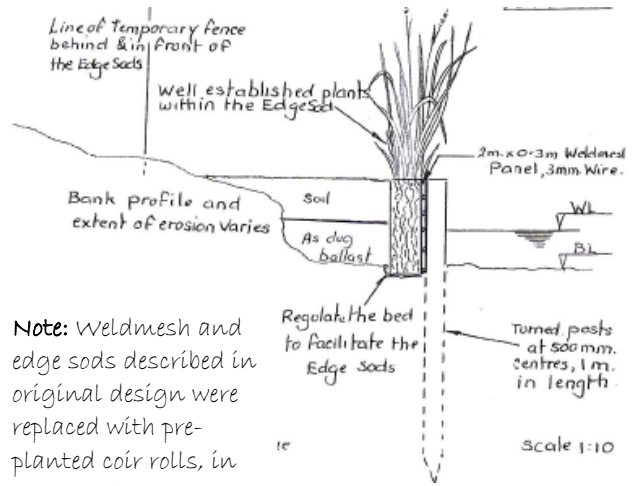 Line of Temporary fence
behind & in front of
the Edge Sods
Well established plants
within the Edge Sod
2m. x 0.3m Weldmesh
Panel, 3mm Wire.
Bank profile and
extent of erosion Varies
Soil
As dug
ballast
WL
BL
Regulate the bed
to facilitate the
Edge Sods
Turned posts
at 500mm.
centres, 1m.
in length.
Note: Weldmesh and
edge sods described in
original design were
replaced with pre-
planted coir rolls, in
te
Scale 1:10